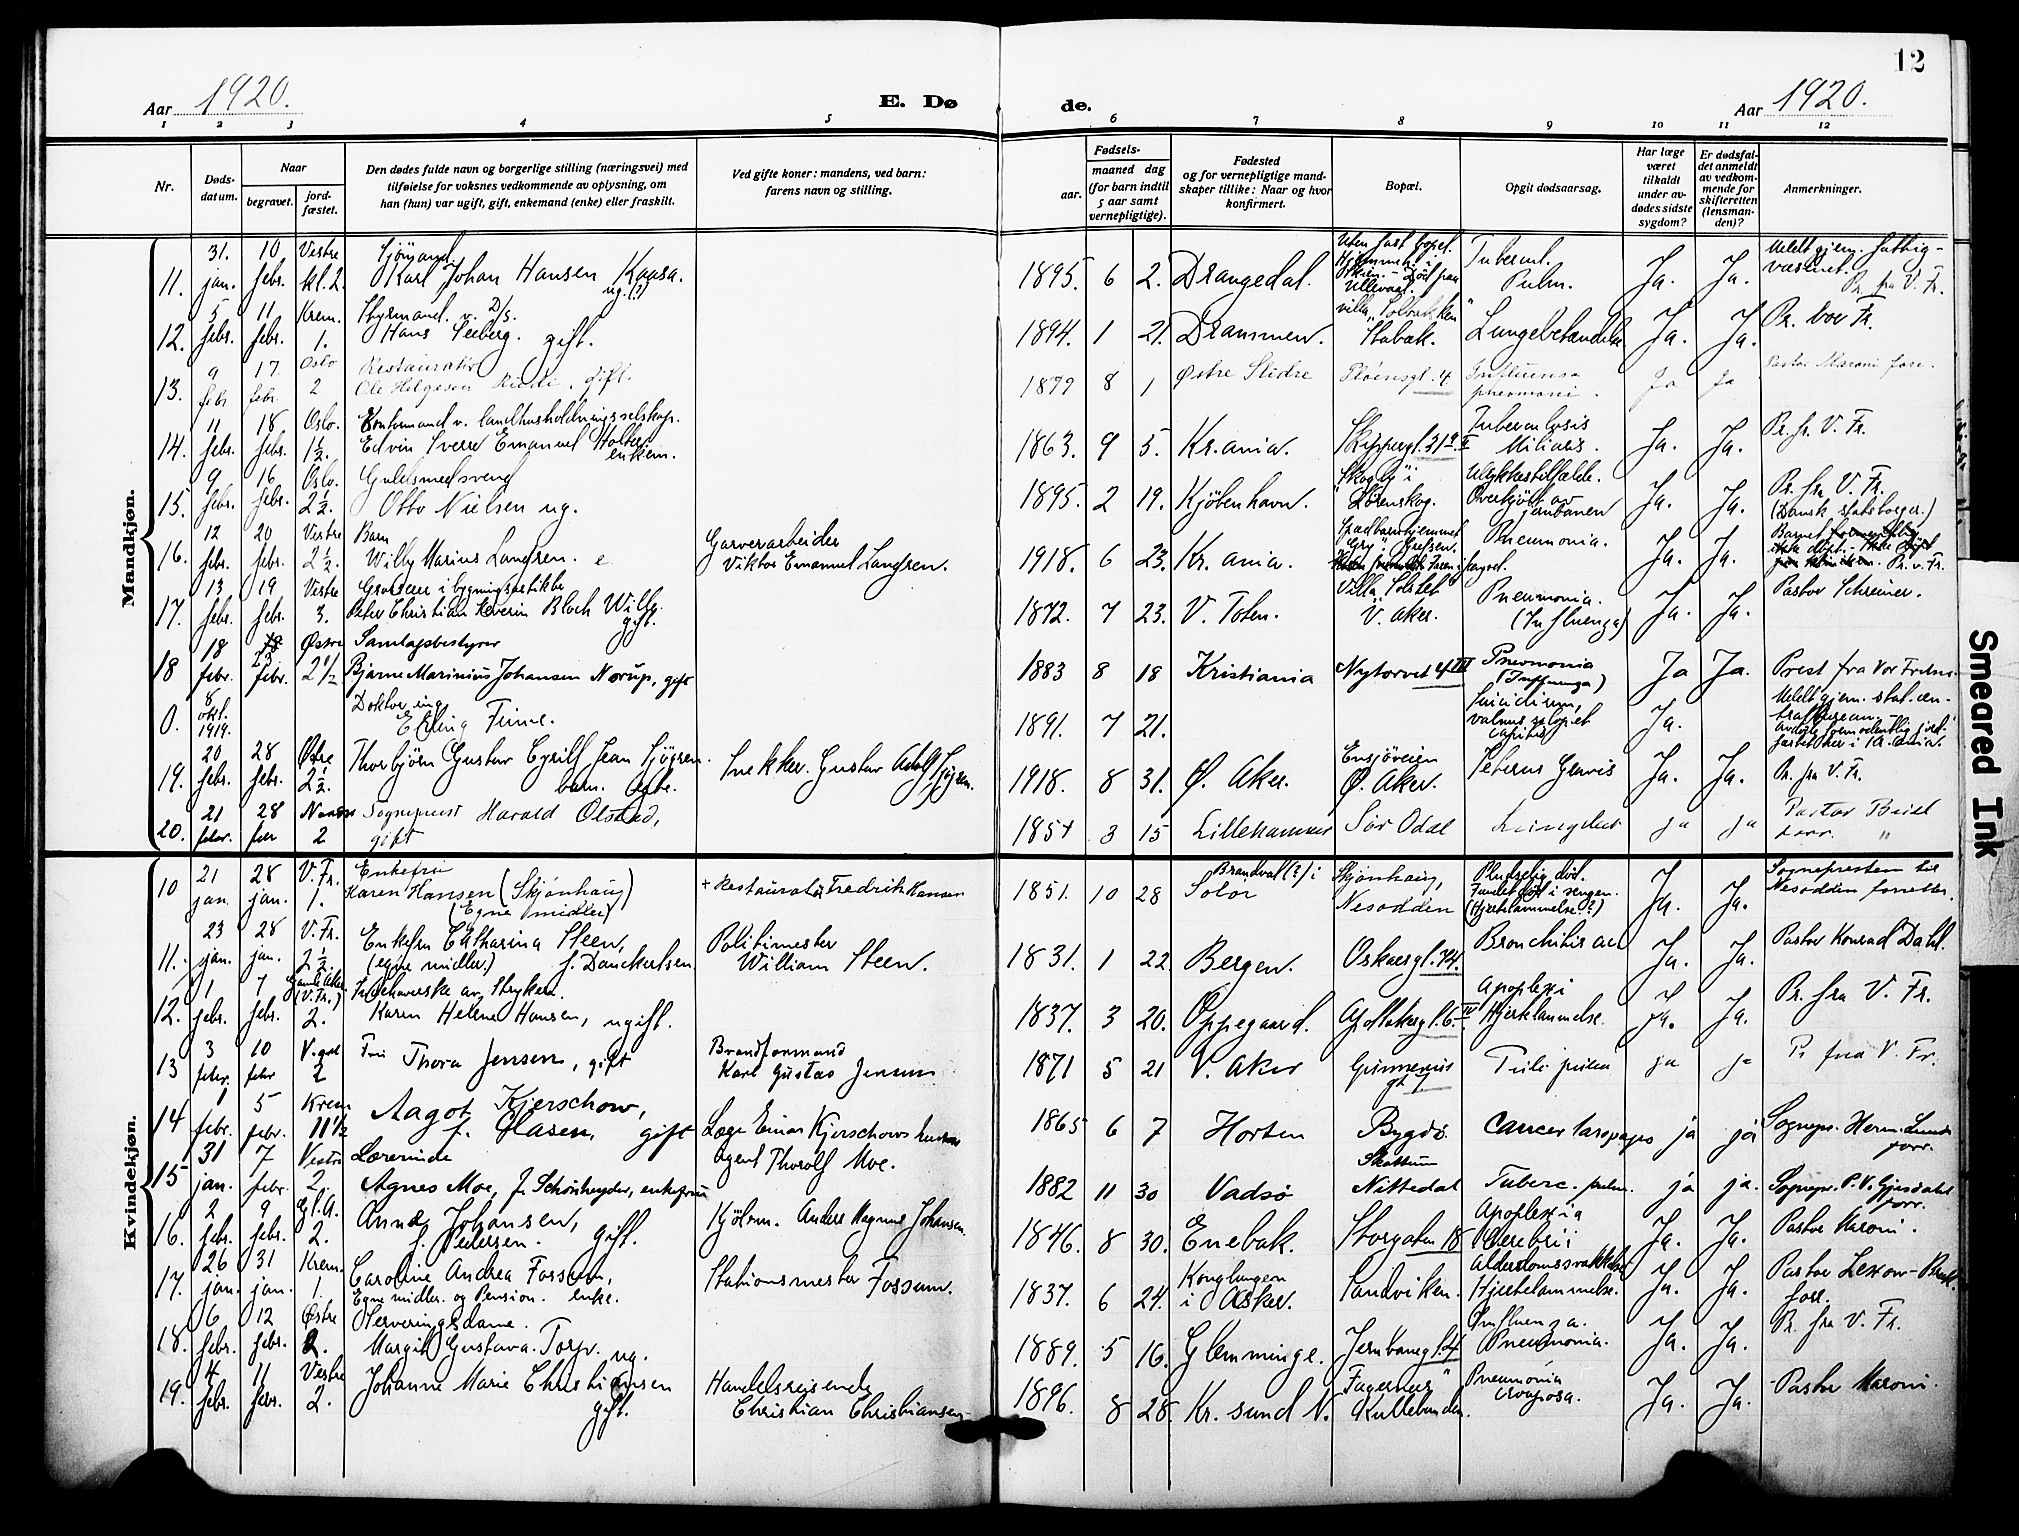 12
Aar 1920.
E. Dø de.
Aar 1920.
1 2 3 4 5 6 7 8 9 10 11 12
Nr.
Døds-datum.
Naar
begravet.
jord-fæstet.
Den dødes fulde navn og borgerlige stilling (næringsvei) med
tilføielse for voksnes vedkommende av oplysning, om
han (hun) var ugift, gift, enkemand (enke) eller fraskilt.
Ved gifte koner: mandens, ved barn:
farens navn og stilling.
Fødsels-
aar.
maaned dag
(for barn indtil
5 aar samt
vernepligtige).
Fødested
og for vernepligtige mand-
skaper tillike: Naar og hvor
konfirmert.
Bopæl.
Opgit dødsaarsag.
Har læge
været
tilkaldt
under av-
dødes sidste
sygdom?
Er dødsfal-
det anmeldt
av vedkom-
mende for
skifteretten
(lensman-
den)?
Anmerkninger.
Mandkjøn.
11. 31. jan. 10 febr. Vestre kl. 2. Sjømand. Karl Johan Hansen Kaasa. ug. (?) 1895. 6 2. Drangedal. Uten fast bopel. Ullevaal. Tubercul. Pulm. Ja. Ja. Meldt gjem. fattigvæsenet. Pr. fra V. Fr.
12. 5 febr. 11 febr. Krem. 1. Styrmand. v. D/S. Hans Seeberg. gift. 1894. 1 21. Drammen. villa "Solbakken" Stabæk. Lungebetændelse Ja. Ja. Pr. vor Fr.
13. 9 febr 17. febr. Oslo 2 Restauratør Ole Helgesen Rudi, gift. 1877 8 1 Østre Slidre Pløensgt. 4 Influensa pneumoni. Ja Ja Pastor Maroni forr.
14. 11 febr. 18 febr. Oslo. 1½. Kontormand v. landhusholdningsselskap. Edvin Sverre Emanuel Holberg enkem. 1863. 9 5. Kr.ania. Skippergt. 31 II Tuberculosis Miliaris. Ja. Ja. Pr. fr. V. Fr.
15. 9 febr. 16 febr. Oslo. 2½. Guldsmedsvend Otto Nielsen ug. 1895. 2 19. Kjøbenhavn. "Skogly" i Lørenskog. Ulykkestilfælde. Overkjørt av jernbanen Ja. Ja. Pr. fra V. Fr. (Dansk statsborger.)
16. 12 febr. 20 febr. Vestre 2½. Barn Willy Marius Langsren. e Garverarbeider Viktor Emanuel Langsren. 1918. 6 23. Kr. ania. Spædbarnhjemmet "Gry" i Grefsen. Pneumonia. Ja. Ja. Barnet Pr. v. Fr.
17. 13 febr. 19 febr. Vestre 3. Grosserer i bygningsartikler Peter Christian Severin Bloch Willy. gift. 1872. 7 23. V. Toten. Villa "Solstet" V. Aker. Pneumonia. (Influenza) Ja. Ja. Pastor Schreiner.
18 18 febr. 23 febr. Østre 2½ Samlagsbestyrer Bjarne Marinius Johansen Nørup, gift 1883 8 18 Kristiania Nytorvet 4 III Pneumonia (Influenza) Ja Ja. Prest fra Vor Frelser
0. 8 okt. 1919. Doktor ing. Erling Finne. 1891. 7 21. Suicidium, vulnus sclopet. capitis Ja. Meldt gjem. stat. centralbureau. avdøde formodentlig jordfæstet her i Kr.ania.
19. 20 febr. 28 febr. Østre 2½. Thorbjörn Gustav Cyrill Jean Sjögren. barn. egte. Snekker. Gustav Adolf Sjögren. 1918. 8 31. Ø. Aker. Ensjøveien Ø. Aker. Icterus Gravis Ja. Ja. Pr. fra V. Fr.
20. 21 febr. 28 febr Nordre 2 Sogneprest Harald Olstad, gift 1854 3 15 Lillehammer Sør Odal ja ja Pastor forr.
Kvindekjøn.
10 21 jan 28 jan. V. Fr. 1. Enkefru Karen Hansen (Skjønhaug) (Egne midler) + Restauratør Fredrik Hansen 1851. 10 28 Brandval (?) i Solør Skjønhaug, Nesodden Pludselig død. Fundet død i sengen. (Hjertelammelse?) Ja. Ja. Sogneprest til Nesodden forretter.
11. 23 jan. 28 jan. V. Fr. 2½. Enkefru Catharina Steen, (egne midler.) f. Danckertsen Politimester William Steen. 1831. 1 22. Bergen. Oskarsgt. 74. Bronchitis ac. Ja. Ja. Pastor Konrad Dahl.
12. 1 febr. 7 febr. Gamle Aker (V. Fr.) 2. Indehaverske av strykeri. Karen Helene Hansen, ugift. 1837. 3 20. Oppegaard. Apothekergt. 6. IV Apoplexi Hjertelammelse. Ja. Ja. Pr. fra V. Fr.
13 3 febr. 10 febr V. gvl 2 Fru Thora Jensen, gift Brandformand Karl Gustav Jensen 1871 5 21 V. Aker Gunnerius gt 7 ja ja Pr fra V. Fr.
14 febr. 5 febr. Krem 11½ Aagot Kjerschow, f. Clasen, gift Læge Einar Kjerschows hustru 1865 6 7 Horten Bygdø Cancer ja ja Sognepr. Herm. Lunde forr.
15 31 jan. 7 febr. Vestre 2. Lærerinde Agnes Moe, f. Schønheyder, enkefru agent Thorolf Moe. 1882 11 30 Vadsø Skøttum Nittedal Tuberc. pulm. ja ja. Sognepr. P. V. Gjesdahl forr.
16. 2 febr. 9 febr. Gl. A. 2. Anne Johansen, f. Pedersen. gift. Kjølem. Anders Magnus Johansen. 1846. 8 30. Enebak. Storgaten 18 Apoplexia Cerebri Ja. Ja. Pastor Maroni.
17. 26 jan. 31 jan. Krem. 1. Caroline Andrea Fossum, Egne midler og Pension. enke. Stationsmester Fossum. 1837. 6 24. Konglungen i Asker. Sandviken. Alderdomssvakkelse Hjertelammelse. Ja. Ja. Pastor Lexow- forr.
18. 6 febr. 12 febr. Østre 2. Serveringsdame. Margit Gustava Torp. ug. 1889. 5 16. Glemminge. Jernbanegt. 4 Influenza. Pneumonia. Ja. Ja. Pr. fra V. Fr.
19. 4 febr. 11 febr. Vestre 2. Johanne Marie Christiansen gift. Handelsreisende Christian Christiansen. 1896. 8 28. Kr. sund N. "Fagernes" Kullebunden. Pneumonia crouposa. Ja. Ja. Pastor Maroni.
Smeared Ink